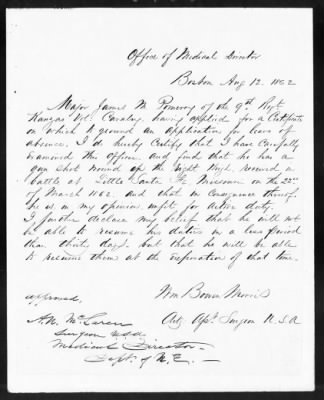 Office of Medical Director
Boston Aug 12. 1862
Major James M Pomeroy of the 9th Regt
Kansas Vol. Cavalry, having applied for a Certificate
on which to ground an application for leave of
absence. I do hereby Certify that I have Carefully
examined this officer and find that he has a
gun shot wound of the right thigh, received in
battle at Little Santa Fe Missouri on the 22nd
of March 1862 and that in Consequence thereof
he is in my opinion unfit for active duty.
I further declare my belief that he will not
be able to resume his duties in a less period
than thirty days. but that he will be able
to resume them at the expiration of that time.
approved,
Wm Bower Morris
Actg Asst. Surgeon U.S.A
A.N. McLaren
Surgeon USA
Medical Director
Dept. of N.E.